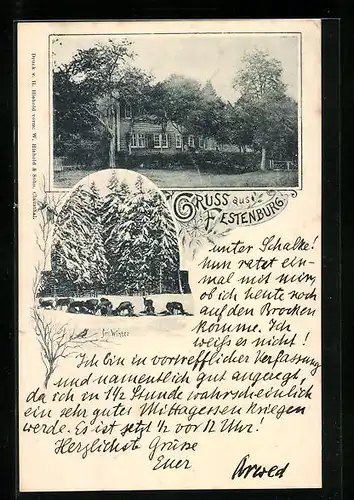 Druck v. H. Hishold vorm: W. Hishold & Sohn, Clausthal.
GRUSS aus
FESTENBURG.
Im Winter
unter Schalke!
nun ratet ein-
mal mit mir,
ob ich heute noch
auf den Brocken
komme. Ich
weiß es nicht!
Ich bin in vortrefflicher Verfassung
und namentlich gut angeregt,
da ich in 1½ Stunde wahrscheinlich
ein sehr gutes Mittagessen kriegen
werde. Es ist jetzt ½ vor 12 Uhr!
Herzlichste Grüße
Euer Arwed